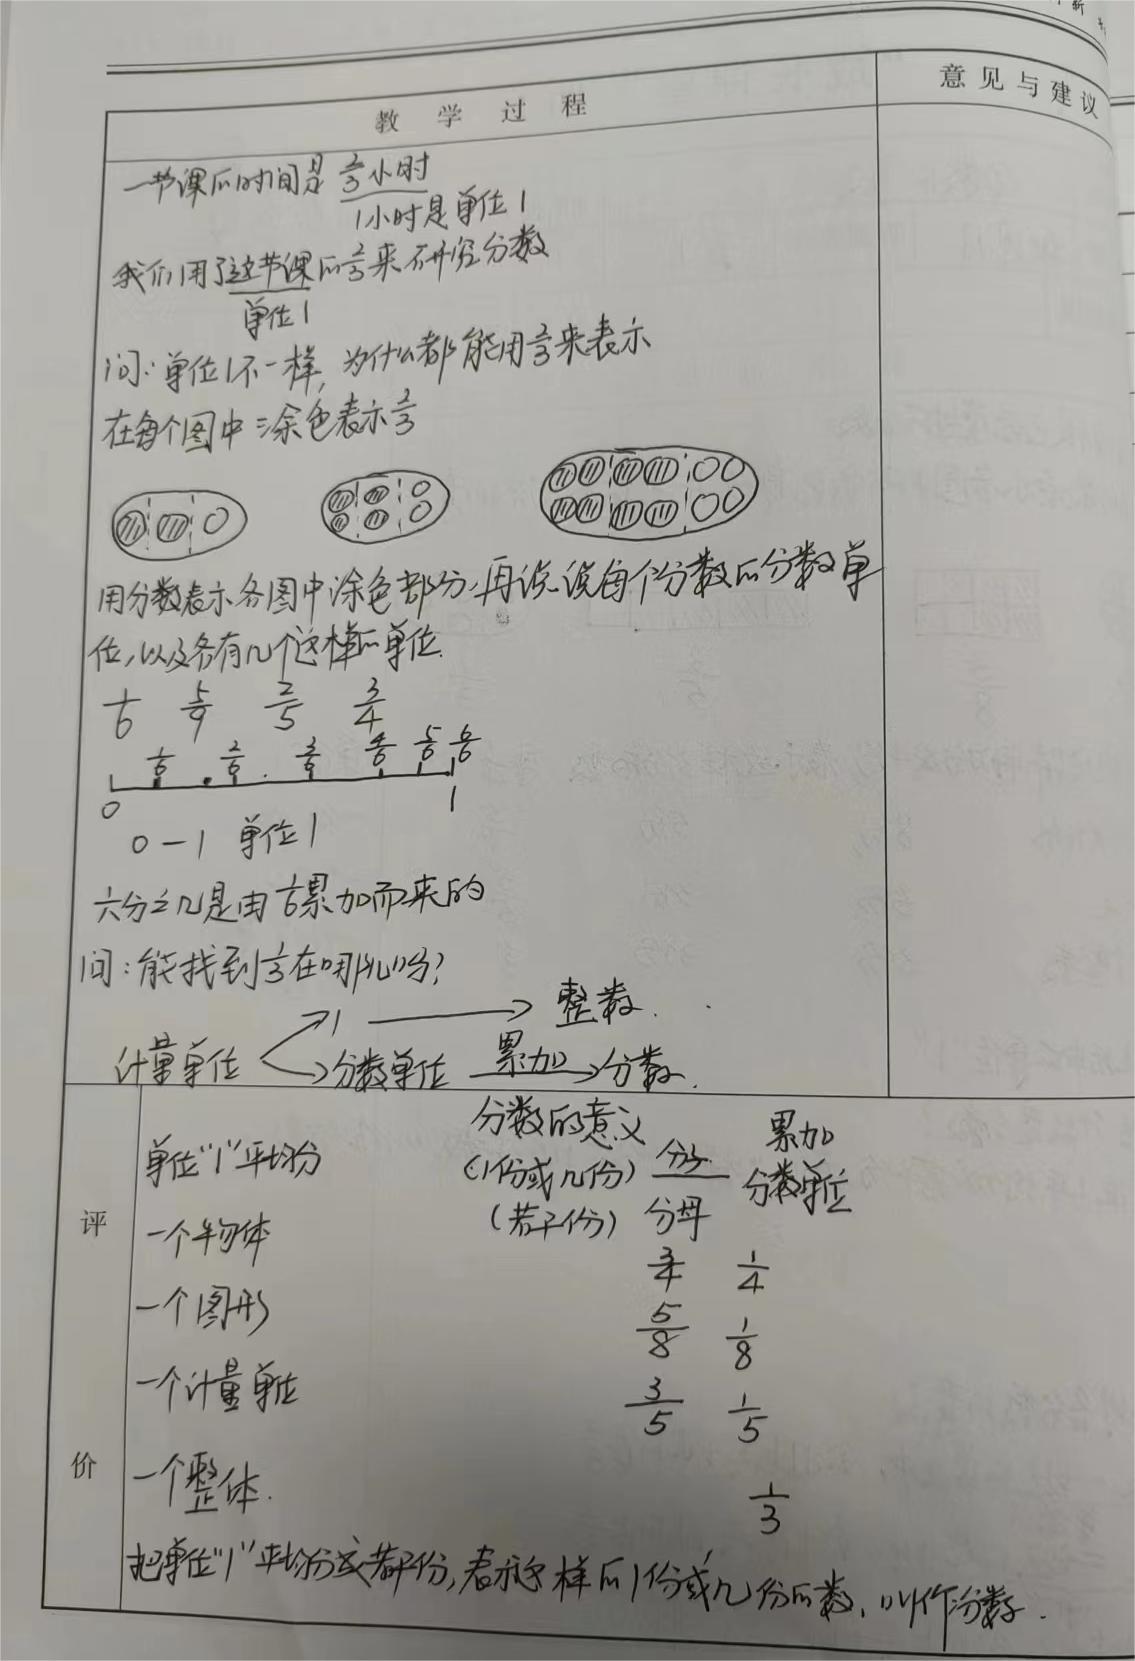 教学过程
意见与建议
一节课的时间是2/3小时
1小时是单位1
我们用了这节课的2/3来研究分数
单位1
问:单位1不一样,为什么都能用2/3来表示
在每个图中涂色表示2/3
用分数表示各图中涂色部分,再说说每个分数的分数单
位,以及各有几个这样的单位.
1/6 5/9 2/5 3/4
1/6 2/6 3/6 4/6 5/6 6/6
0 1
0—1 单位1
六分之几是由1/6累加而来的
问:能找到1/3在哪儿吗?
1 → 整数.
计量单位 分数单位 累加 → 分数.
评价
分数的意义 累加
单位“1”平均分 (1份或几份) 分子 分数单位
(若干份) 分母
一个物体 3/4 1/4
一个图形 5/8 1/8
一个计量单位 3/5 1/5
一个整体. 1/3
把单位“1”平均分成若干份,表示这样的1份或几份的数,叫作分数.